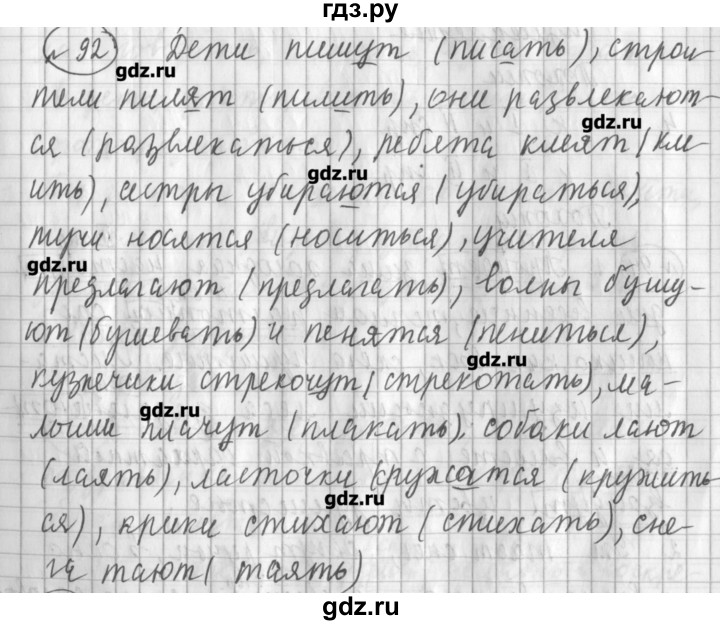 гдз.ру
№ 92 Дети пишут (писать), строи-
gdz.ru
тели пилят (пилить), они развлекают-
gdz.ru
ся (развлекаться), ребята клеят (кле-
gdz.ru
ить), сестры убираются (убираться),
тучи носятся (носиться), учителя
gdz.ru
предлагают (предлагать), волны бушу-
ют (бушевать) и пенятся (пениться),
gdz.ru
кузнечики стрекочут (стрекотать), ма-
gdz.ru
лыши плачут (плакать), собаки лают
(лаять), ласточки кружатся (кружить-
gdz.ru
ся), крики стихают (стихать), сне-
га тают (таять)
gdz.ru